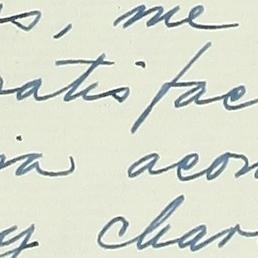 s, me
ratis fac
ia acom
y char